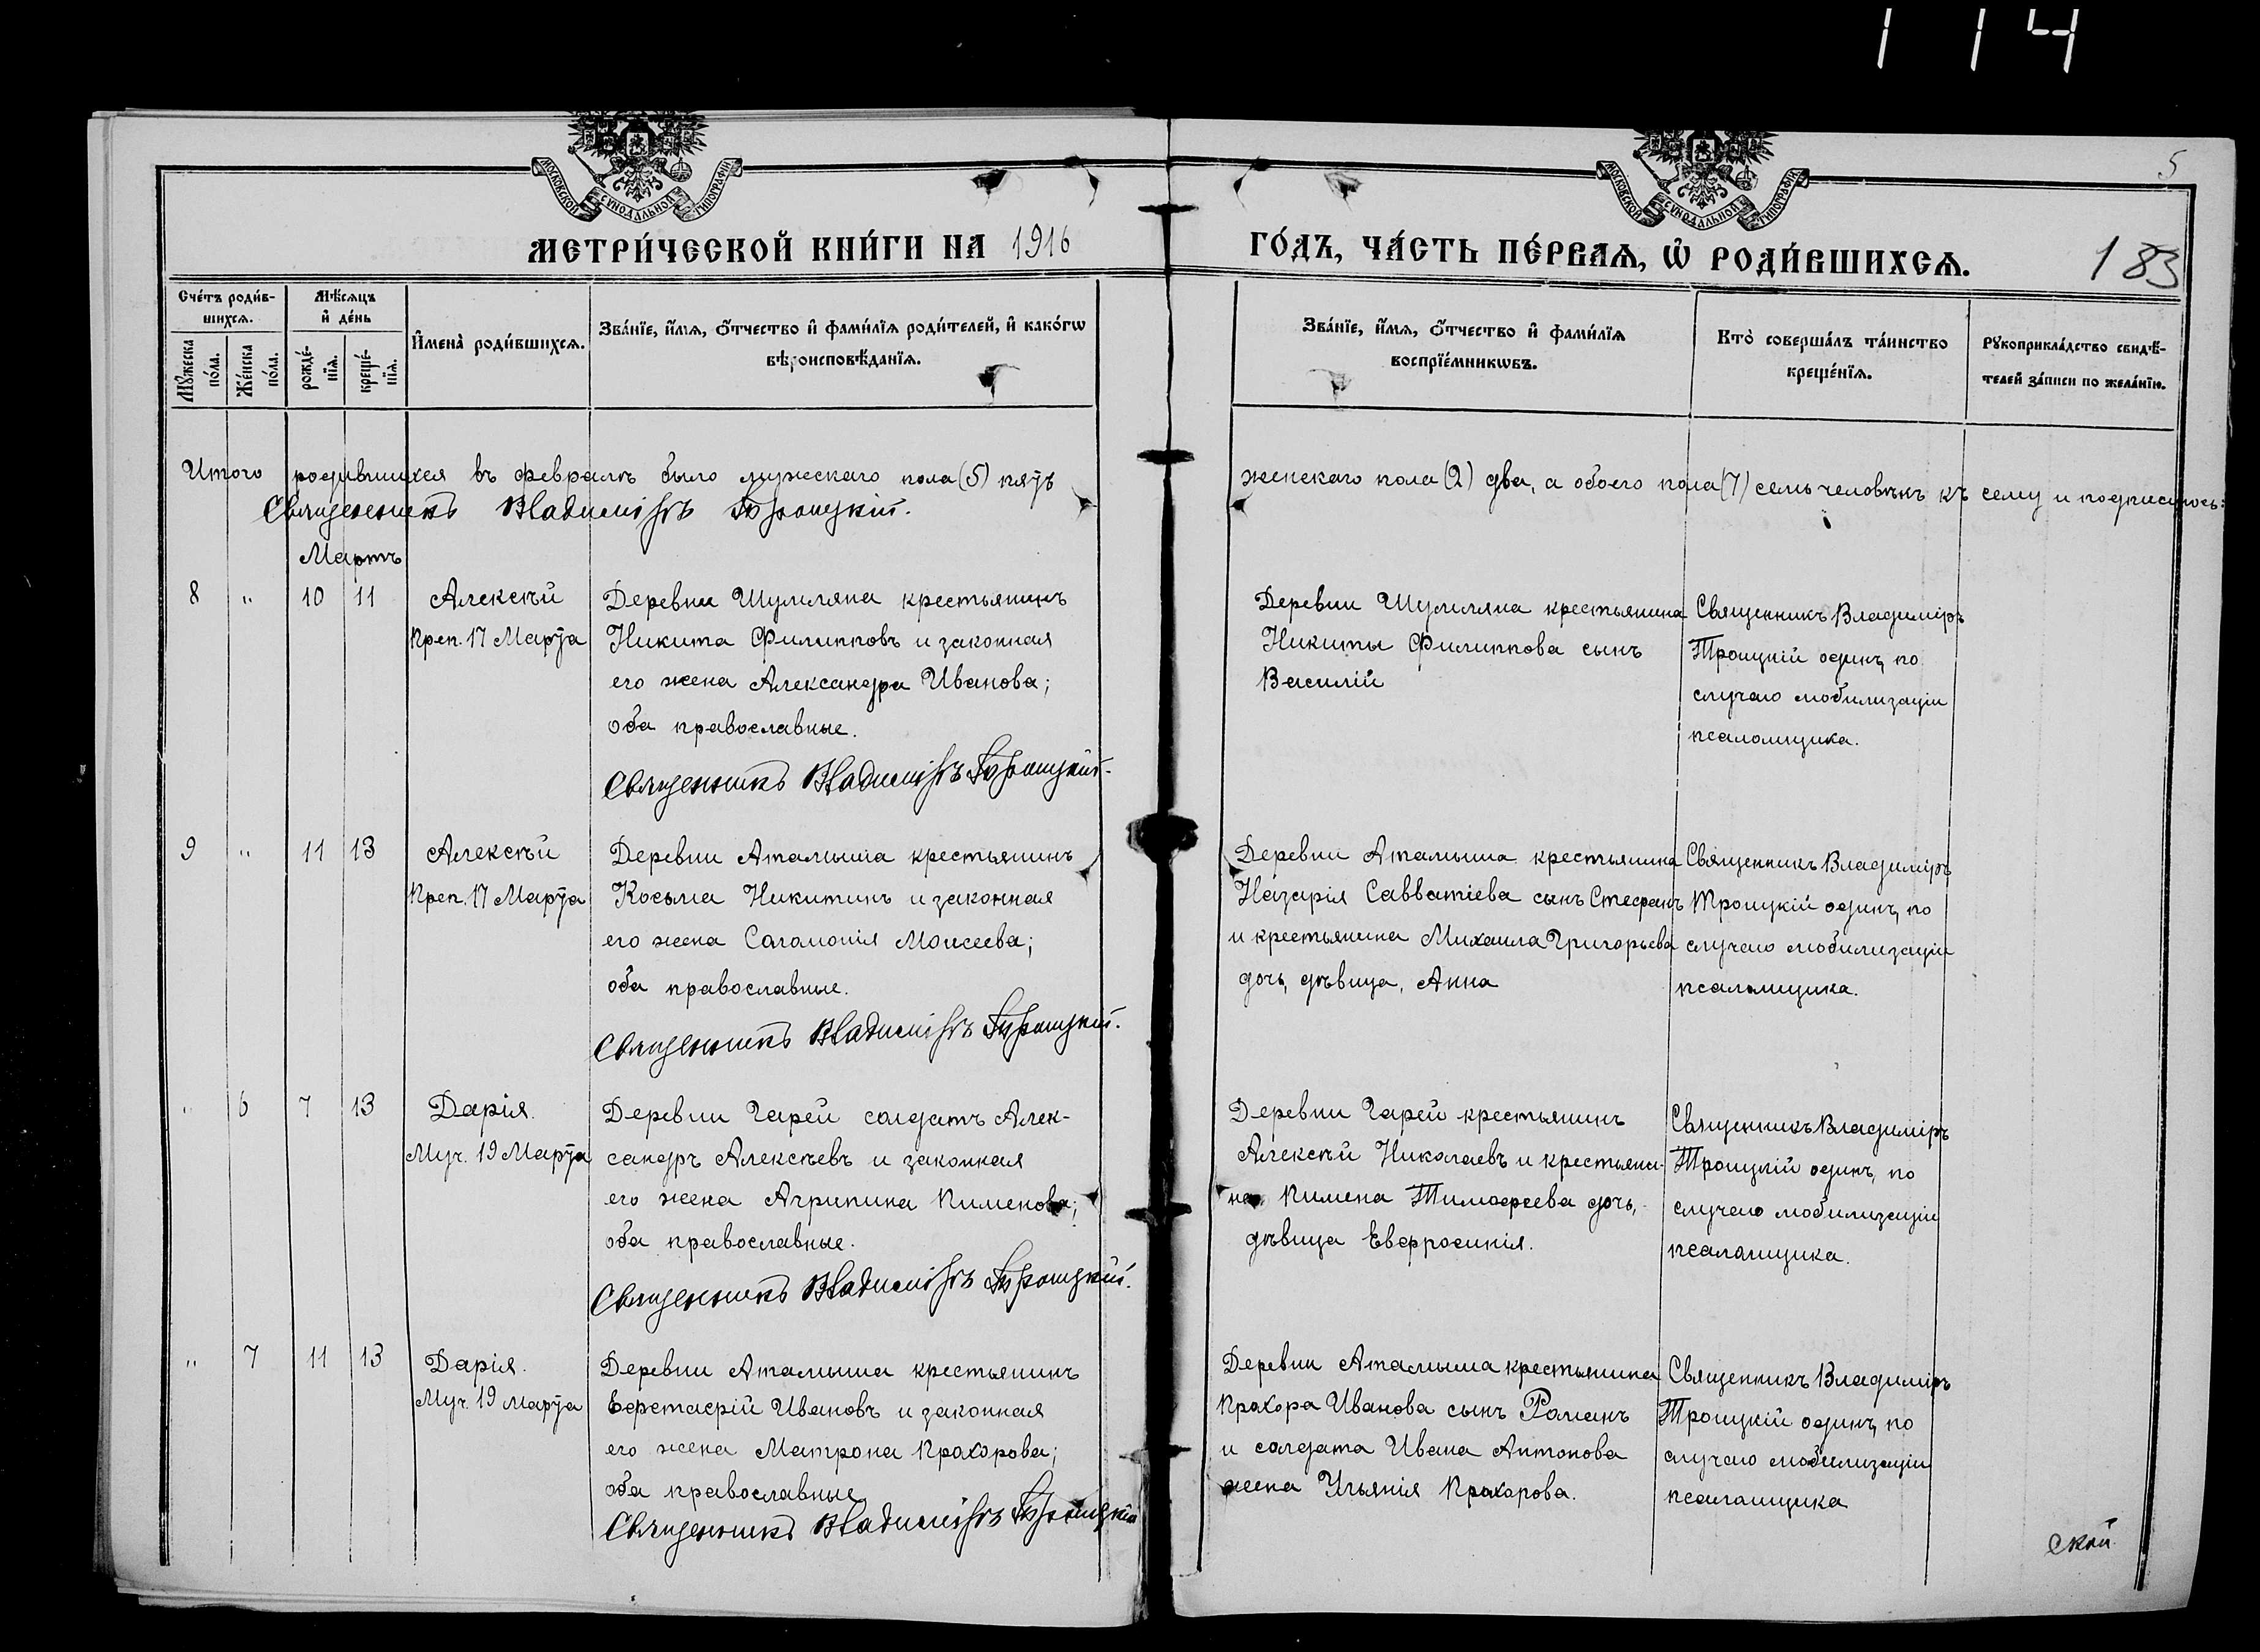 114
МОСКОВСКОЙ СУНОДАЛЬНОЙ ТИПОГРАФІИ
МОСКОВСКОЙ СУНОДАЛЬНОЙ ТИПОГРАФІИ
5
МЕТРИ́ЧЕСКОЙ КНИ́ГИ НА 1916
ГО́ДЪ, ЧА́СТЬ ПЕ́РВАѦ, Ѡ҆ РОДИ́ВШИХСѦ.
183
Сче́тъ роди́в-
шихсѧ.
Мѣ́сѧцъ
и҆ де́нь
Мꙋ́жеска
по́ла.
Же́нска
по́ла.
рожде́-
нїѧ.
креще́-
нїѧ.
И҆мена̀ роди́вшихсѧ.
Зва́нїе, и҆́мѧ, ѻ҆́тчество и҆ фами́лїѧ роди́телей, и҆ како́гѡ
вѣроисповѣ́данїѧ.
Зва́нїе, и҆́мѧ, ѻ҆́тчество и҆ фами́лїѧ
воспрїе́мникѡвъ.
Кто̀ соверша́лъ та́инство
креще́нїѧ.
Рꙋкоприкла́дство свидѣ́-
телей за́писи по жела́нїю.
Итого родившихся въ февралѣ было мужескаго пола (5) пять
женскаго пола (2) два, а обоего пола (7) семь человѣкъ къ сему и подписуюсь:
Священникъ Владиміръ Троицкій.
Мартъ
8 " 10 11
Алексѣй
Преп. 17 Марта
Деревни Шумляна крестьянинъ
Никита Филипповъ и законная
его жена Александра Иванова;
оба православные.
Священникъ Владиміръ Троицкій.
Деревни Шумляна крестьянина
Никиты Филиппова сынъ
Василій
Священникъ Владиміръ
Троицкій одинъ, по
случаю мобилизаціи
псаломщика.
9 " 11 13
Алексѣй
Преп. 17 Марта
Деревни Атамыша крестьянинъ
Косьма Никитинъ и законная
его жена Саломонія Моисеева;
оба православные.
Священникъ Владиміръ Троицкій.
Деревни Атамыша крестьянина
Назарія Савватіева сынъ Стефанъ
и крестьянина Михаила Григорьева
дочь, дѣвица, Анна
Священникъ Владиміръ
Троицкій одинъ, по
случаю мобилизаціи
псаломщика.
" 6 7 13
Дарія.
Муч. 19 Марта
Деревни Гарей солдатъ Алек-
сандръ Алексѣевъ и законная
его жена Агрипина Пименова;
оба православные.
Священникъ Владиміръ Троицкій.
Деревни Гарей крестьянинъ
Алексѣй Николаевъ и крестьяни-
на Пимена Тимофеева дочь,
дѣвица Евфросинія.
Священникъ Владиміръ
Троицкій одинъ, по
случаю мобилизаціи
псаломщика.
" 7 11 13
Дарія.
Муч. 19 Марта
Деревни Атамыша крестьянинъ
Ефстафій Ивановъ и законная
его жена Матрона Прохорова;
оба православные
Священникъ Владиміръ Троицкій
Деревни Атамыша крестьянина
Прохора Иванова сынъ Романъ
и солдата Ивана Антонова
жена Ульянія Прохорова.
Священникъ Владиміръ
Троицкій одинъ, по
случаю мобилизаціи
псаломщика
ской